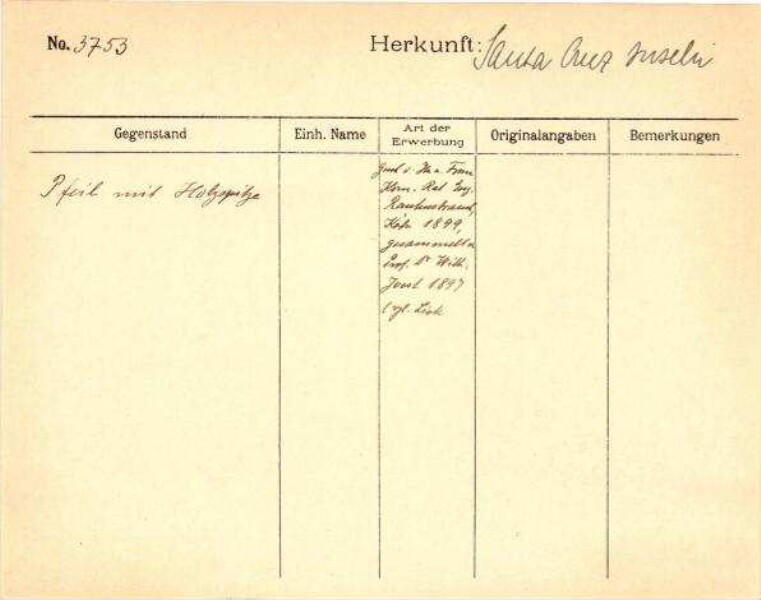 No. 3753
Herkunft: Santa Cruz Inseln
Gegenstand
Einh. Name
Art der
Erwerbung
Originalangaben
Bemerkungen
Pfeil mit Holzspitze
Frau
Kom. Rat Eug.
Rautenstrauch,
Köln 1899,
gesammelt v.
Prof. Dr Wilh.
Joest 1897
(vgl. Liste